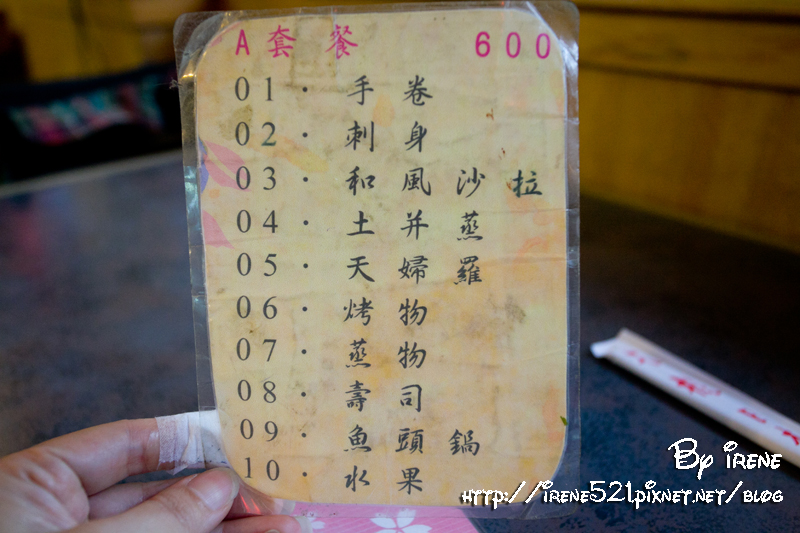 A 套 餐 600
01. 手 卷
02. 刺 身
03. 和 風 沙 拉
04. 土 并 蒸
05. 天 婦 羅
06. 烤 物
07. 蒸 物
08. 壽 司
09. 魚 頭 鍋
10. 水 果
By Irene
http://irene521pixnet.net/blog